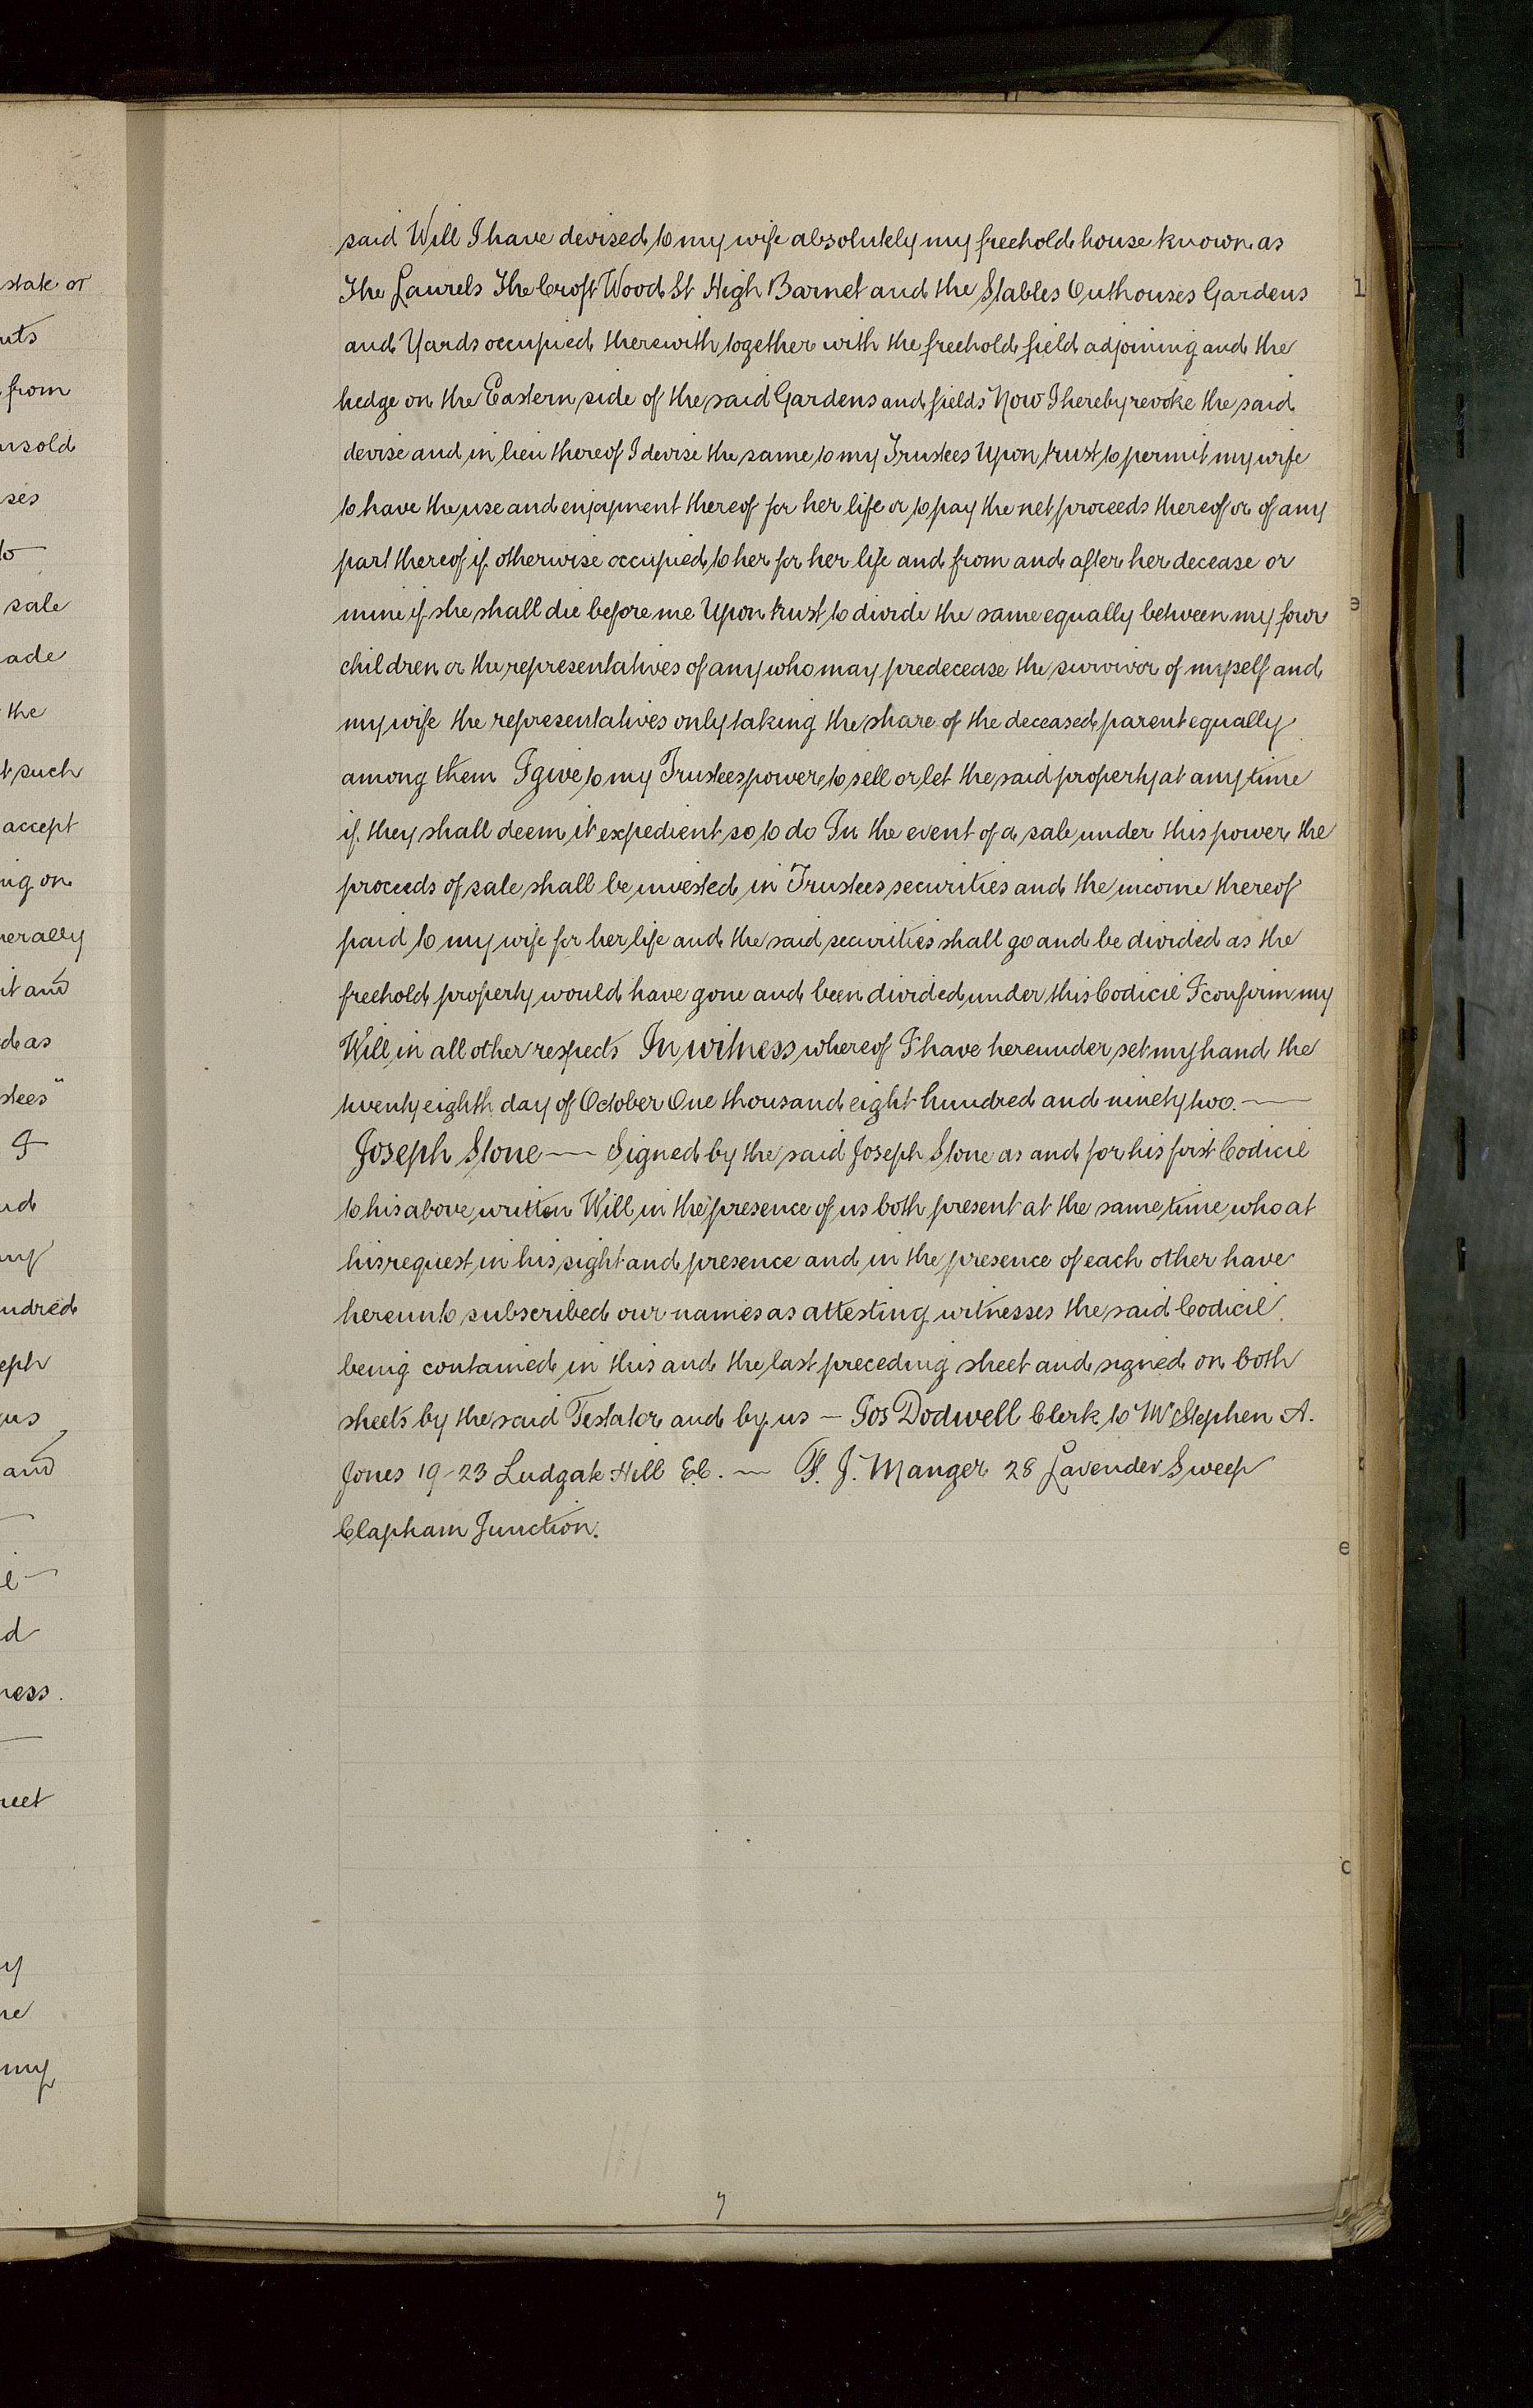 said Will I have devised to my wife absolutely my freehold house known as
The Laurels The Croft Wood St High Barnet and the Stables Outhouses Gardens
and Yards occupied therewith together with the freehold field adjoining and the
hedge on the Eastern side of the said Gardens and fields Now I hereby revoke the said
devise and in lieu thereof I devise the same to my Trustees Upon trust to permit my wife
to have the use and enjoyment thereof for her life or to pay the net proceeds thereof or of any
part thereof if otherwise occupied to her for her life and from and after her decease or
mine if she shall die before me Upon trust to divide the same equally between my four
children or the representatives of any who may predecease the survivor of myself and
my wife the representatives only taking the share of the deceased parent equally
among them I give to my Trustees power to sell or let the said property at any time
if they shall deem it expedient so to do In the event of a sale under this power the
proceeds of sale shall be invested in Trustees securities and the income thereof
paid to my wife for her life and the said securities shall go and be divided as the
freehold property would have gone and been divided under this Codicil I confirm my
Will in all other respects In witness whereof I have hereunder set my hand the
twenty eighth day of October One thousand eight hundred and ninety two. —
Joseph Stone — Signed by the said Joseph Stone as and for his first Codicil
to his above written Will in the presence of us both present at the same time who at
his request in his sight and presence and in the presence of each other have
hereunto subscribed our names as attesting witnesses the said Codicil
being contained in this and the last preceding sheet and signed on both
sheets by the said Testator and by us — Jos Dodwell Clerk to Mr Stephen A.
Jones 19-23 Ludgate Hill E.C. — F. J. Manger 28 Lavender Sweep
Clapham Junction.
state or
from
sale
the
such
accept
and
as
and